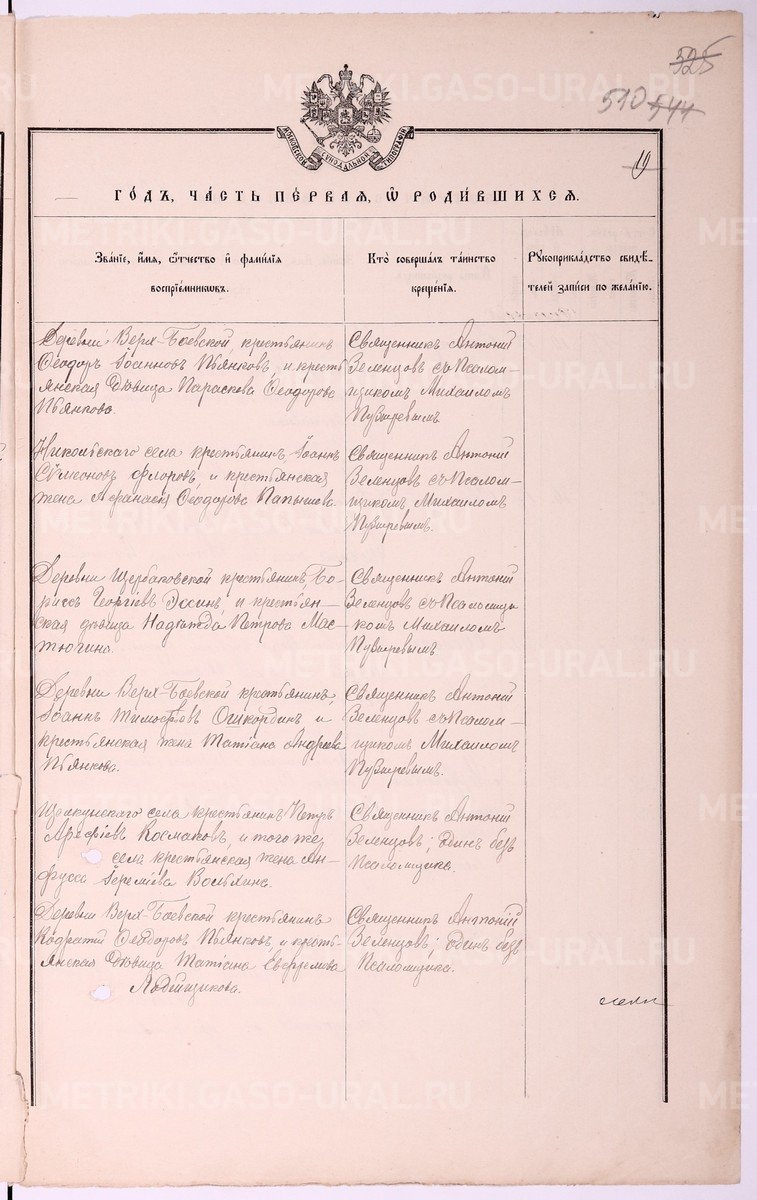 525
510 544
МОСКОВСКОЙ СѴНОДАЛЬНОЙ ТИПОГРАФІИ
19
ГО́ДЪ, ЧА́СТЬ ПЕ́РВАѦ, Ѡ҆ РОДИ́ВШИХСѦ.
Зва́нїе, и҆́мѧ, ѻ҆́тчество и҆ фами́лїѧ
воспрїе́мникѡвъ.
Кто̀ соверша́лъ та́инство
креще́нїѧ.
Рꙋкоприкла́дство свидѣ́-
телей за́писи по жела́нїю.
Деревни Верх-Боевской, крестьянинъ
Ѳеодоръ Іоанновъ Пьянковъ, и кресть
янская дѣвица Параскова Ѳеодорова
Пьянкова.
Священникъ Антоній
Зеленцовъ съ Псалом-
щикомъ Михаиломъ
Пузыревымъ
Никольскаго села крестьянинъ Іоаннъ
Сѵмеоновъ Флоровъ, и крестьянская
жена Афанасія Ѳеодорова Папышева.
Священникъ Антоній
Зеленцовъ съ Псалом-
щикомъ Михаиломъ
Пузыревымъ.
Деревни Щербаковской крестьянинъ, Бо-
рисъ Георгіевъ и крестьян-
ская дѣвица Надежда Петрова Мас-
тюгина.
Священникъ Антоній
Зеленцовъ съ Псаломщи-
комъ Михаиломъ
Пузыревымъ
Деревни Верх-Боевской крестьянинъ,
Іоаннъ Тимофѣевъ Ошкординъ и
крестьянская жена Татіана Андреева
Пьянкова.
Священникъ Антоній
Зеленцовъ съ Псалом-
щикомъ Михаиломъ
Пузыревымъ.
Щелкунскаго села крестьянинъ Петръ
Арефіевъ Космаковъ, и того же
села крестьянская жена Ан-
фуса Іереміева Вольхина.
Священникъ Антоній
Зеленцовъ; одинъ безъ
Псаломщика.
Деревни Верх-Боевской крестьянинъ
Кодратій Ѳеодоровъ Пьянковъ, и кресть-
янская дѣвица Татіана
Лодыщикова.
Священникъ Антоній
Зеленцовъ; одинъ безъ
Псаломщика.
METRIKI.GASO-URAL.RU